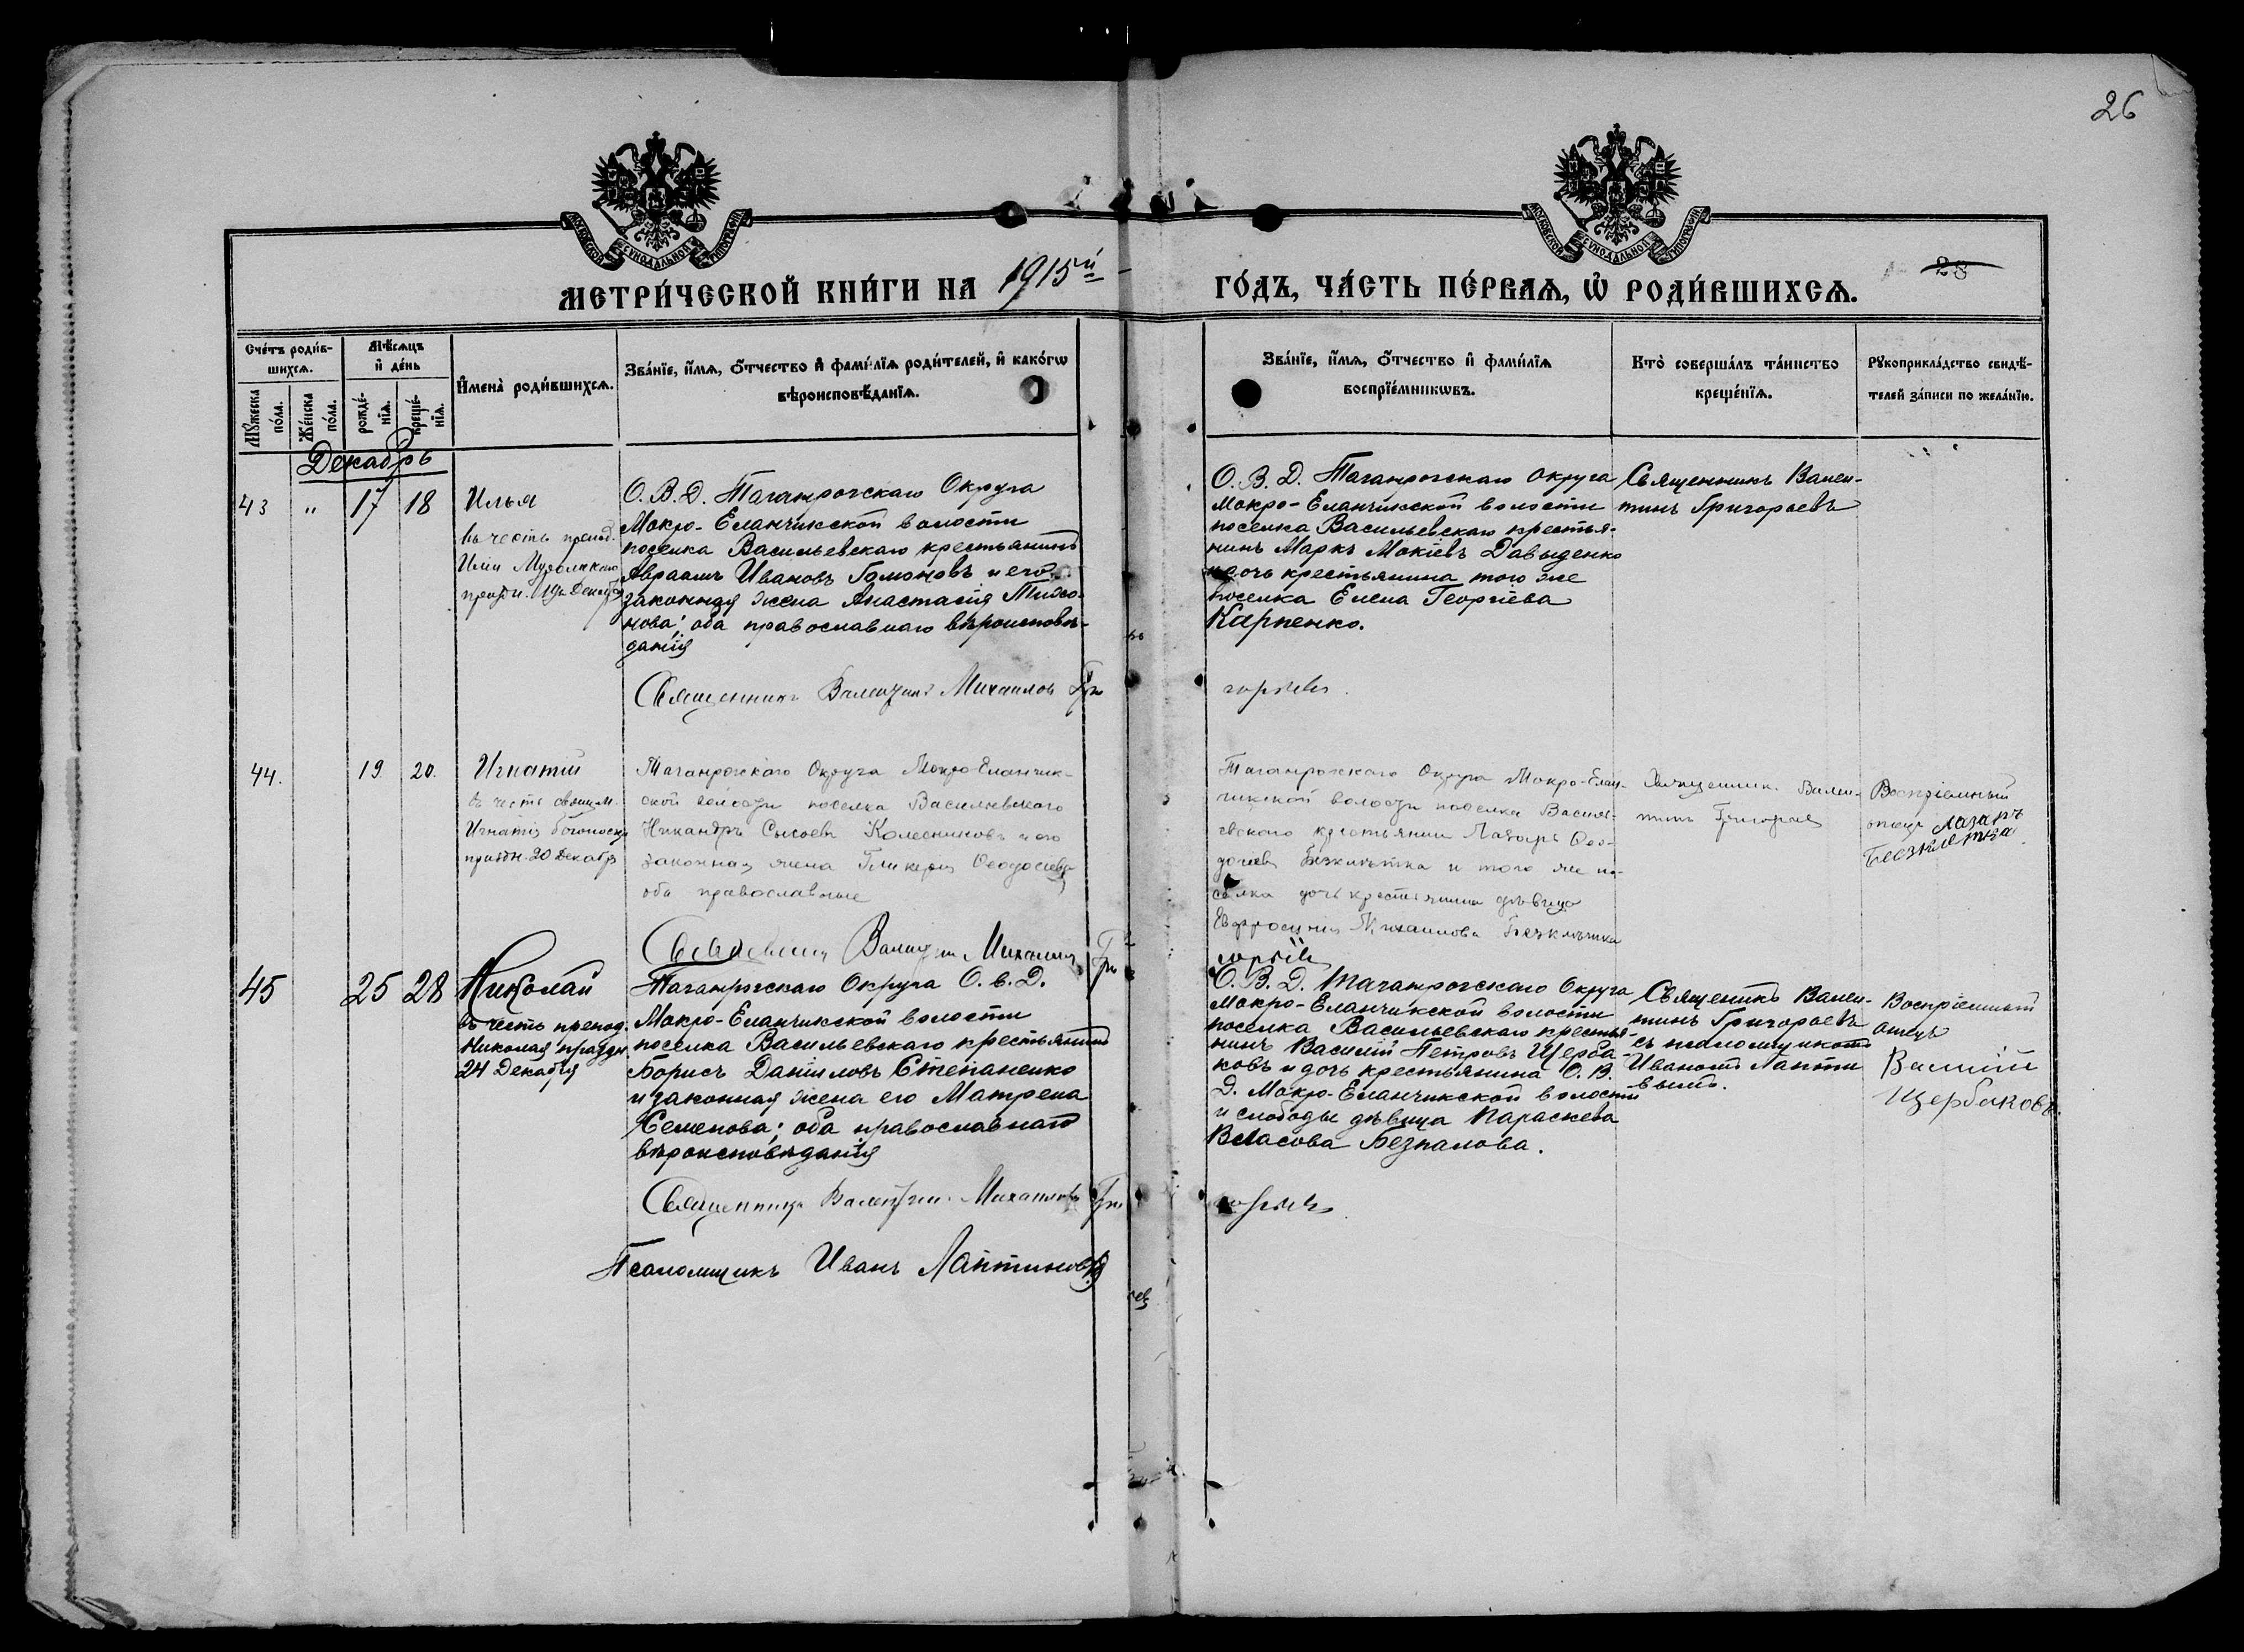 26
МОСКОВСКОЙ СѴНОДАЛЬНОЙ ТИПОГРАФІИ
МОСКОВСКОЙ СѴНОДАЛЬНОЙ ТИПОГРАФІИ
МЕТРИ́ЧЕСКОЙ КНИ́ГИ НА 1915й
ГО́ДЪ, ЧА́СТЬ ПЕ́РВАѦ, Ѡ҆ РОДИ́ВШИХСѦ.
28
Сче́тъ роди́в-
шихсѧ.
Мꙋ́жеска
по́ла.
Же́нска
по́ла.
Мѣ́сѧцъ
и҆ де́нь
рожде́-
нїѧ.
креще́-
нїѧ.
И҆мена̀ роди́вшихсѧ.
Зва́нїе, и҆́мѧ, ѻ҆́тчество и҆ фами́лїѧ роди́телей, и҆ како́гѡ
вѣроисповѣ́данїѧ.
Зва́нїе, и҆́мѧ, ѻ҆́тчество и҆ фами́лїѧ
воспрїе́мникѡвъ.
Кто̀ соверша́лъ та́инство
креще́нїѧ.
Рꙋкоприкла́дство свидѣ́-
телей за́писи по жела́нїю.
Декабрь
43 " 17 18
Илья
въ честь препод.
Иліи Муромскаго
праздн. 19 Декабря
О. В. Д. Таганрогскаго Округа
Мокро-Еланчикской волости
поселка Васильевскаго крестьянинъ
Авраамъ Ивановъ Гомоновъ и его
законная жена Анастасія Тихо-
нова; оба православнаго вѣроисповѣ-
данія
Священникъ Валентинъ Михаиловъ Гри
О. В. Д. Таганрогскаго Округа
Мокро-Еланчикской волости
поселка Васильевскаго крестья-
нинъ Маркъ Мокіевъ Давыденко
и дочь крестьянина того же
поселка Елена Георгіева
Карпенко.
горьевъ.
Священникъ Вален-
тинъ Григорьевъ
44. 19 20.
Игнатій
въ честь священном.
Игнатія Богоносца
праздн. 20 Декабря
Таганрогскаго Округа Мокро-Еланчик-
ской волости поселка Васильевскаго
Никандръ Сысоевъ Колесниковъ и его
законная жена Гликерія Ѳеодосіева
оба православные
Священникъ Валентинъ Михаиловъ Гри
Таганрогскаго Округа Мокро-Елан-
чикской волости поселка Василь-
евскаго крестьянинъ Лазарь Ѳео-
досіевъ Безклѣтка и того же по-
селка дочь крестьянина дѣвица
Евфросинія Михаилова Безклѣтка
горьевъ
Священникъ Вален-
тинъ Григорьевъ
Воспріемный
отецъ Лазарь
Безклетка
45 25 28
Николай
въ честь препод.
Николая праздн.
24 Декабря
Таганрогскаго Округа О. в. Д.
Мокро-Еланчикской волости
поселка Васильевскаго крестьянинъ
Борисъ Даниловъ Степаненко
и законная жена его Матрена
Семенова; оба православнаго
вѣроисповѣданія
Священникъ Валентинъ Михаиловъ Гри
Псаломщикъ Иванъ Лаптиновъ
О. В. Д. Таганрогскаго Округа
Мокро-Еланчикской волости
поселка Васильевскаго крестья-
нинъ Василій Петровъ Щерба-
ковъ и дочь крестьянина О. В.
Д. Мокро-Еланчикской волости
и слободы дѣвица Параскева
Власова Безпалова.
горьевъ
Священикъ Вален-
тинъ Григорьевъ
съ псаломщикомъ
Иваномъ Лапти-
вымъ.
Воспріемный
отецъ
Василій
Щербаковъ.